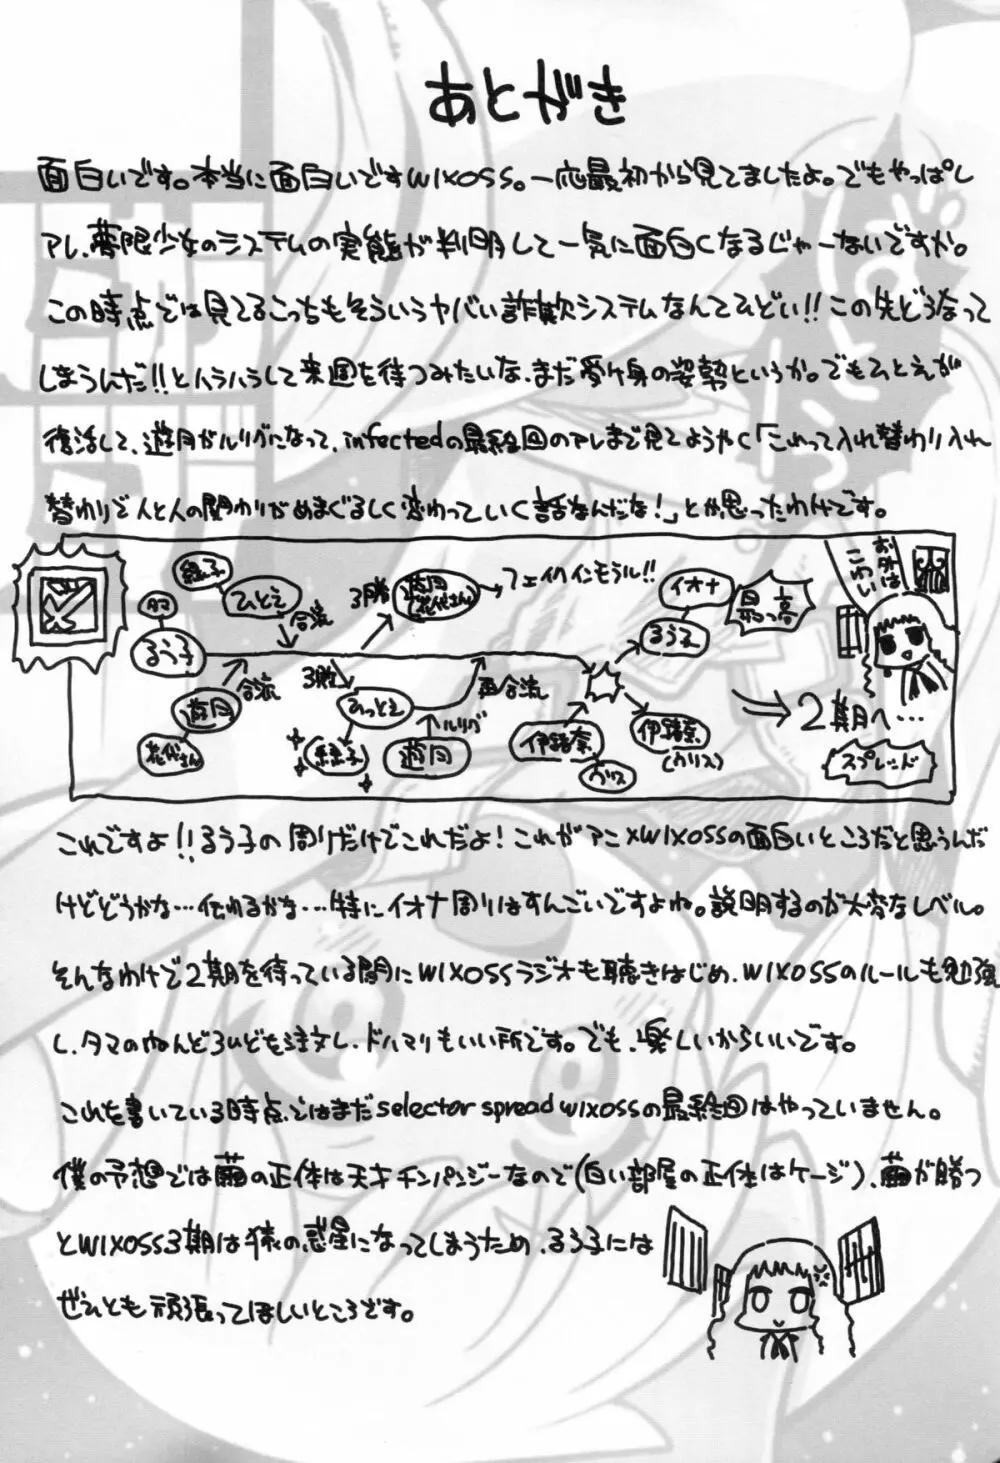 あとがき
面白いです。本当に面白いですWIXOSS。一応最初から見てましたよ。でもやっぱし
アレ、夢限少女のシステムの実態が判明して一気に面白くなるじゃーないですか。
この時点では見てるこっちもそういうヤバい詐欺システムなんてひどい!!この先どうなって
しまうんだ!!とハラハラして来週を待つみたいな、まだ受け身の姿勢というか。でもひとえが
復活して、遊月がルリグになって、infectedの最終回のアレまで見てようやく「これって入れ替わり入れ
替わりで人と人の関わりがめまぐるしく変わっていく話なんだな!」とか思ったわけです。
タマ
るう子
緑子
ひとえ
合流
遊月
花代さん
合流
3勝
遊月
(花代さん)
フェイクインモラル!!
3敗
ひとえ
緑子
再合流
ルリグ
遊月
イオナ
るう子
最っ高
伊緒奈
ウリス
伊緒奈
(ウリス)
2期へ…
スプレッド
お外は
こわい
これですよ!!るう子の周りだけでこれだよ!これがアニメWIXOSSの面白いところだと思うんだ
けどどうかな…伝わるかな…特にイオナ周りはすんごいですよね。説明するのが大変なレベル。
そんなわけで2期を待っている間にWIXOSSラジオも聴きはじめ、WIXOSSのルールも勉強
し、タマのねんどろいどを注文し、ドハマりもいい所です。でも、楽しいからいいです。
これを書いている時点ではまだselector spread wixossの最終回はやっていません。
僕の予想では繭の正体は天才チンパンジーなので(白い部屋の正体はケージ)、繭が勝つ
とWIXOSS3期は猿の惑星になってしまうため、るう子には
ぜひとも頑張ってほしいところです。